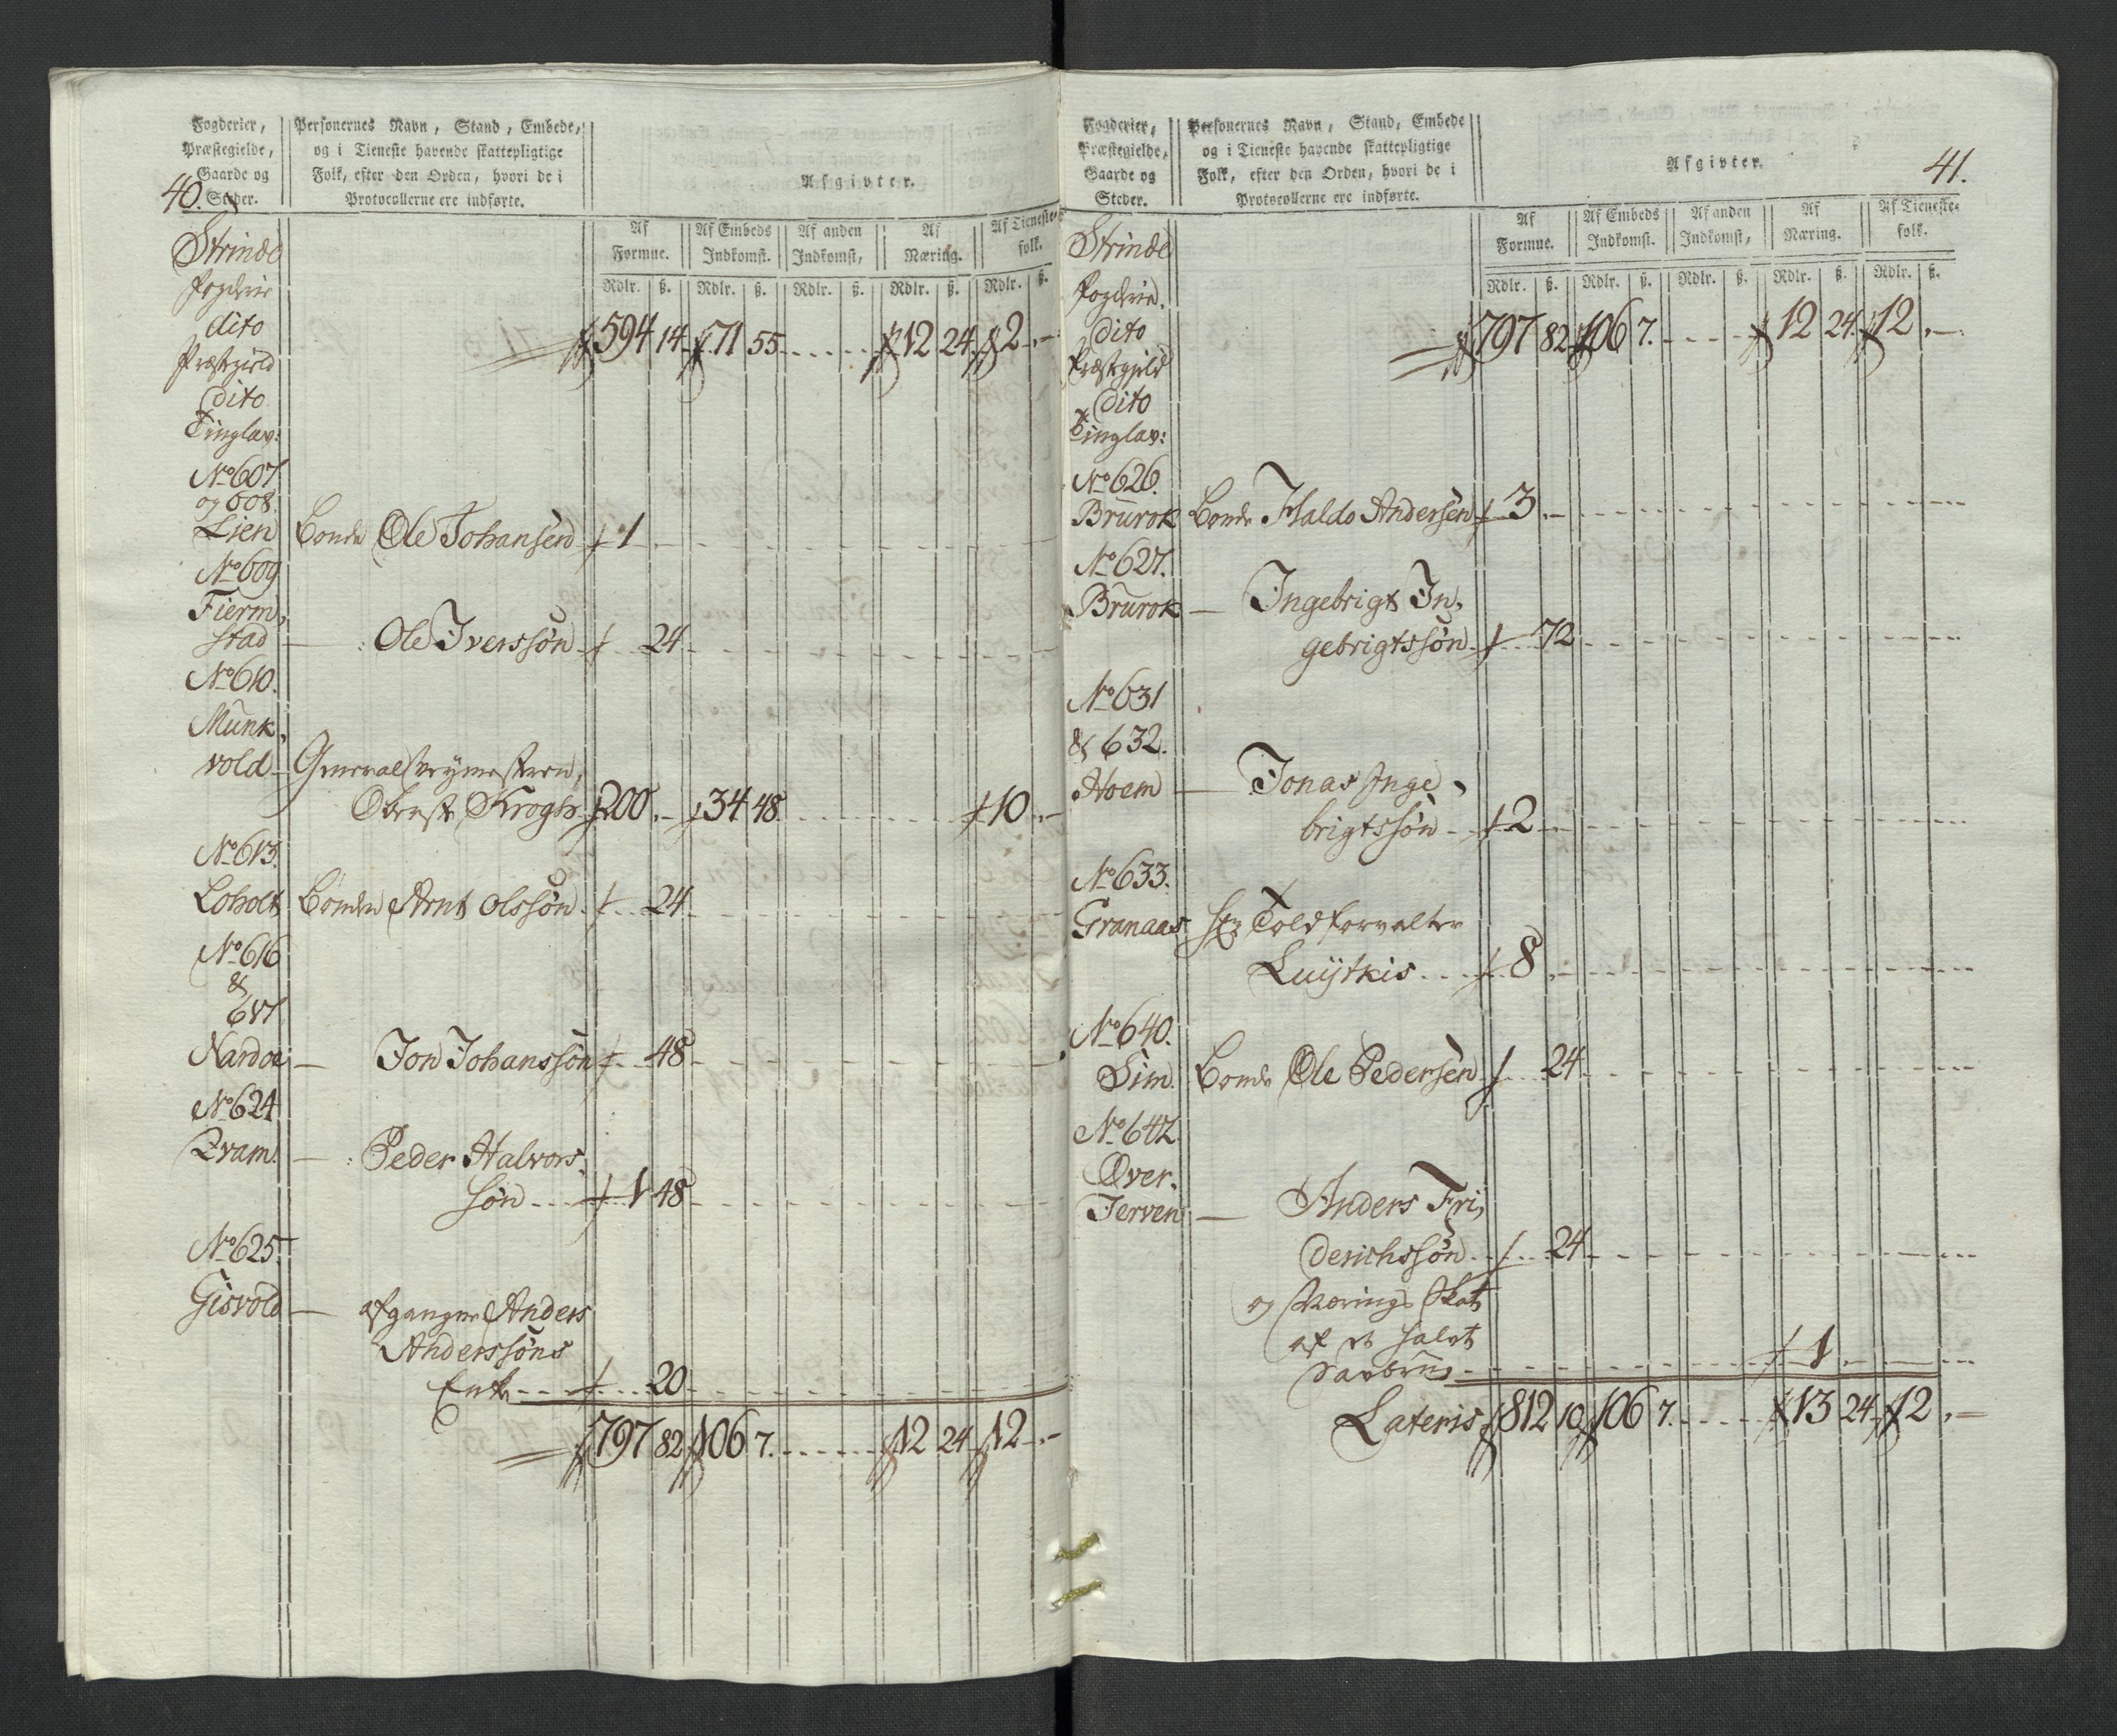 Fogderier,
Præstegielde,
Gaarde og
Steder.
40.
Personernes Navn, Stand, Embede,
og i Tieneste havende skattepligtige
Folk, efter den Orden, hvori de i
Protocollerne ere indførte.
Afgivter.
Af Formue. Af Embeds Indkomst. Af anden Indkomst, Af Næring. Af Tieneste-folk.
Rdlr. ß. Rdlr. ß. Rdlr. ß. Rdlr. ß. Rdlr. ß.
Strinde
Fogderie
dito
594 14 71 55 12 24 2 -
Præstegield
dito
Tinglav:
No 607
og 608.
Lien Bonde Ole Johansen 1 -
No 609
Fierm,
stad — Ole Iverssøn 24
No 610.
Munk,
vold
Oberste Krogh 200 - 34 48 10 -
No 613.
Loholt Bonden Arnt Olssøn 24
No 616
&
617
Nardoe — Jon Johanssøn 48
No 624
Qvam. — Peder Halvors,
søn 1 48
No 625.
Gisvold — afgangne Anders
Anderssøns
Enke 20
797 82 106 7. 12 24 12 -
Fogderier,
Præstegielde,
Gaarde og
Steder.
Personernes Navn, Stand, Embede
og i Tieneste havende skattepligtige
Folk, efter den Orden, hvori de i
Protocollerne ere indførte.
Afgivter.
41.
Af Formue. Af Embeds Indkomst. Af anden Indkomst, Af Næring. Af Tieneste-folk.
Rdlr. ß. Rdlr. ß. Rdlr. ß. Rdlr. ß. Rdlr. ß.
Strinde
Fogderie.
dito
797 82 106 7. 12 24 12 -
Præstegield
dito
Tinglav:
No 626.
Brurok Bonde Haldo Andersen 3 -
No 627.
Brurok — Ingebrigt In,
gebrigtssøn 72
No 631
& 632.
Hoem — Jonas Inge,
brigtssøn 2
No 633.
Granaas Hr. Toldforvalter
Luytkis 8 -
No 640.
Sim. Bonde Ole Pedersen 24
No 642
Øver,
Jerven — Anders Fri,
derichssøn 24
og Nærings Skat
af et halvt
Savbrug 1
Lateris 812 10 106 7. 13 24 12 -